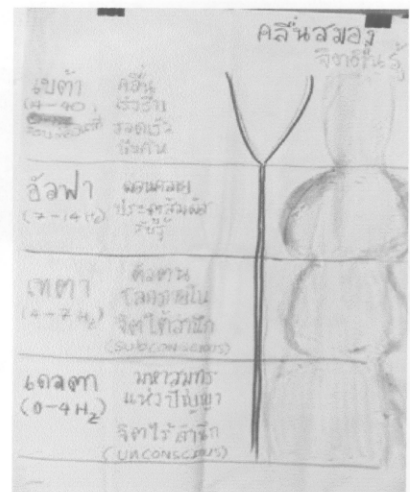 คลื่นสมอง
จิตตื่นรู้
เบต้า
คลื่น
เร่งรีบ
รวดเร็ว
อัลฟา
(7-14 Hz)
ผ่อนคลาย
ประสาทสัมผัส
รับรู้
เทตา
(4-7 Hz)
ตัวตน
โลกภายใน
จิตใต้สำนึก
(SUBCONSCIOUS)
เดลตา
(0-4 Hz)
มหาสมุทร
แห่งปัญญา
จิตไร้สำนึก
(UNCONSCIOUS)